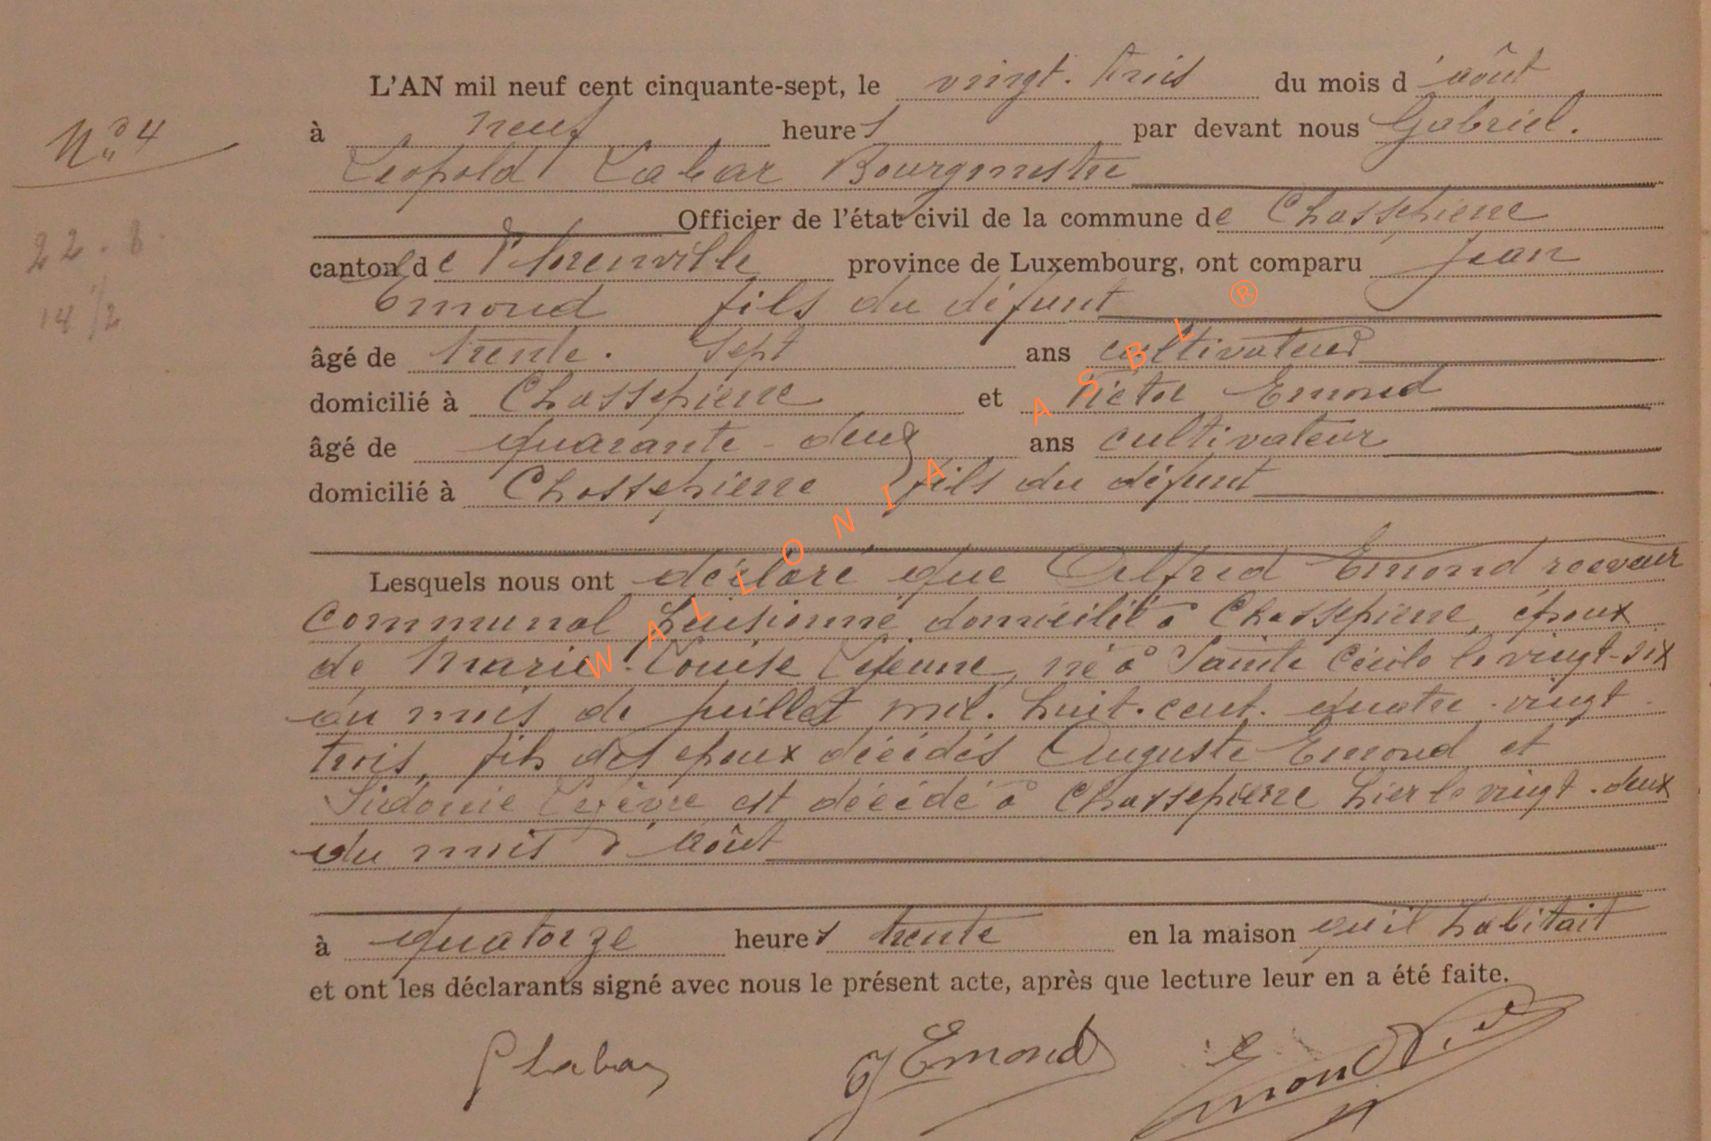 L'AN mil neuf cent cinquante-sept, le vingt-trois du mois d'août
N° 4
à neuf heures par devant nous Gabriel.
Léopold Labar Bourgmestre
Officier de l'état civil de la commune de Chassepierre
22.8.
canton de Florenville province de Luxembourg, ont comparu Jean
14 1/2
Emond fils du défunt
âgé de trente-sept ans cultivateur
domicilié à Chassepierre et Victor Emond
âgé de quarante-deux ans cultivateur
domicilié à Chassepierre fils du défunt
Lesquels nous ont déclaré que Alfred Emond receveur
communal pensionné domicilié à Chassepierre, époux
de Marie-Louise Lejeune, né à Sainte Cécile le vingt-six
du mois de juillet mil-huit-cent-quatre-vingt-
trois, fils des époux décédés Auguste Emond et
Sidonie Lefèvre est décédé à Chassepierre hier le vingt-deux
du mois d'août
à quatorze heures trente en la maison qu'il habitait
et ont les déclarants signé avec nous le présent acte, après que lecture leur en a été faite.
G Labar J Emond Emond Vic
WALLONIA ASBL ®